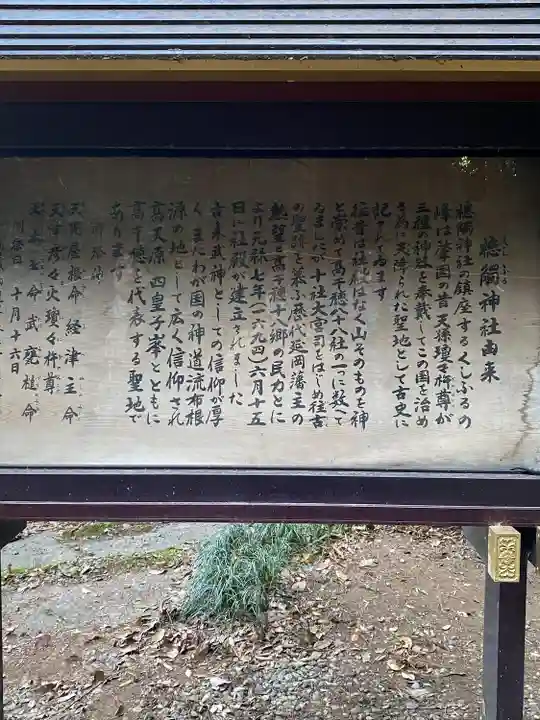 くしふる
槵觸神社由来
槵觸神社の鎮座するくしふるの
峰は肇国の昔天孫瓊々杵尊が
三種神器を奉戴してこの国を治め
るために天降られた聖地として古史に
記されてゐます
往昔は社殿はなく山そのものを神
と崇めて高千穂八十八社の一に数へて
ゐましたが十社大宮司をはじめ往古
の聖跡を慕ふ歴代延岡藩主の
懇望と高千穂十八郷の民力とに
より元禄七年(一六九四)六月十五
日に社殿が建立されました
古来武神としての信仰が厚
くまたわが国の神道流布根
源の地として広く信仰され
高天原四皇子峯とともに
高千穂を代表する聖地で
あります
御祭神
天児屋根命 経津主命
天津彦々火瓊々杵尊
太玉命 武甕槌命
例祭日 十月十六日